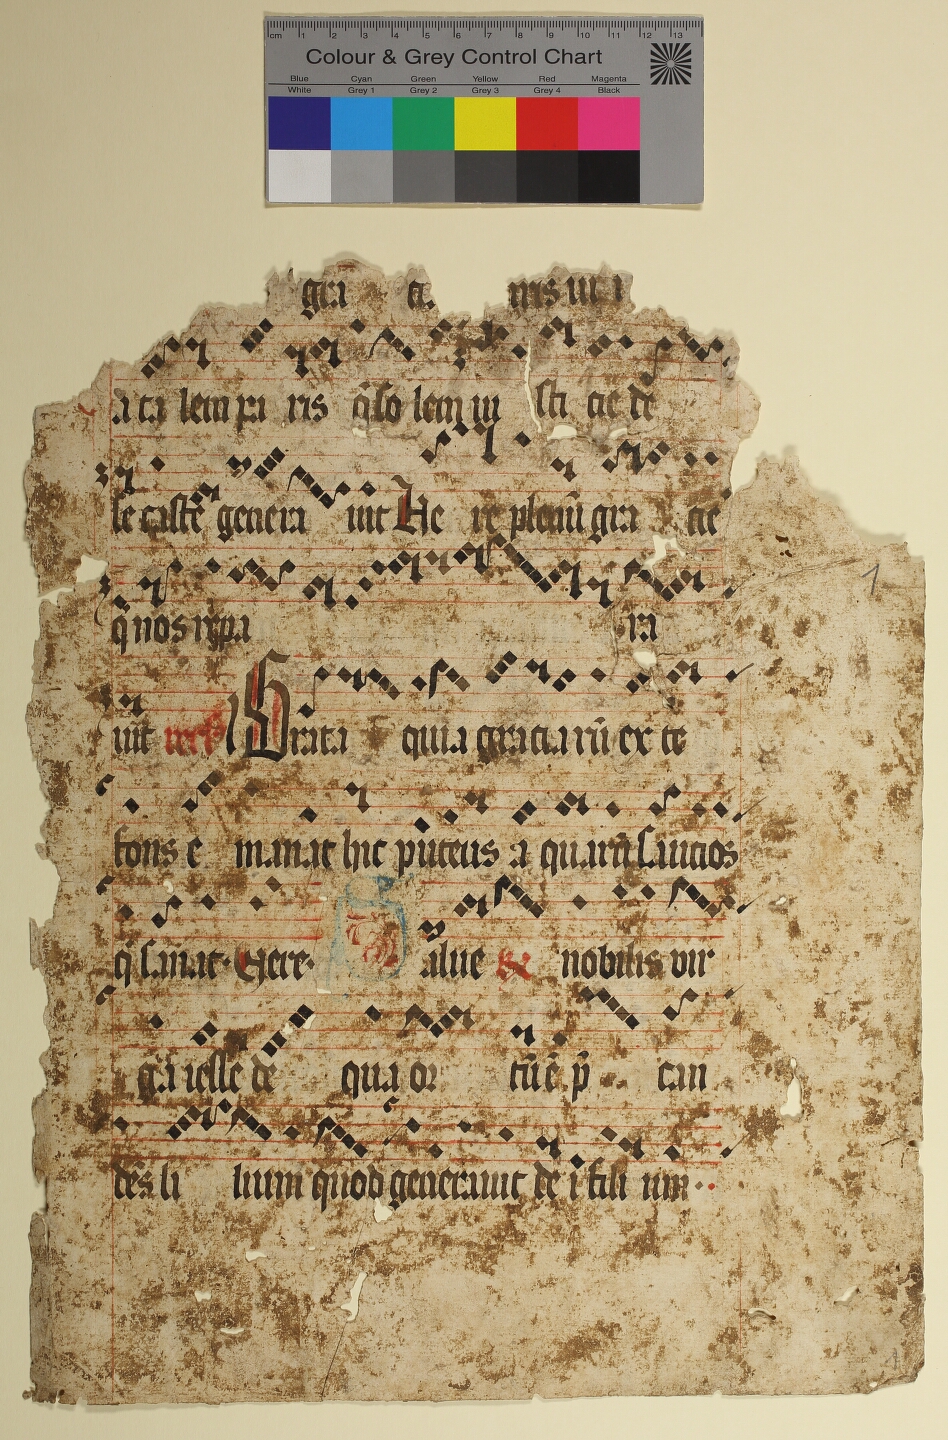 cm 1 2 3 4 5 6 7 8 9 10 11 12 13
Colour & Grey Control Chart
Blue Cyan Green Yellow Red Magenta
White Grey 1 Grey 2 Grey 3 Grey 4 Black
gra
a ta lem pa ris q̄ so lem iu sti cie de
le caste genera uit He re plenū gra cie
1
q̄ nos repa ra
uit Grata quia gracia rū ex te
fons e manat hic puteus a quarū saucios
q̄ sanat Gere alue nobilis vir
ga iesse de qua or tū ē p̄ can
dēs li lium quod generauit dei fili um